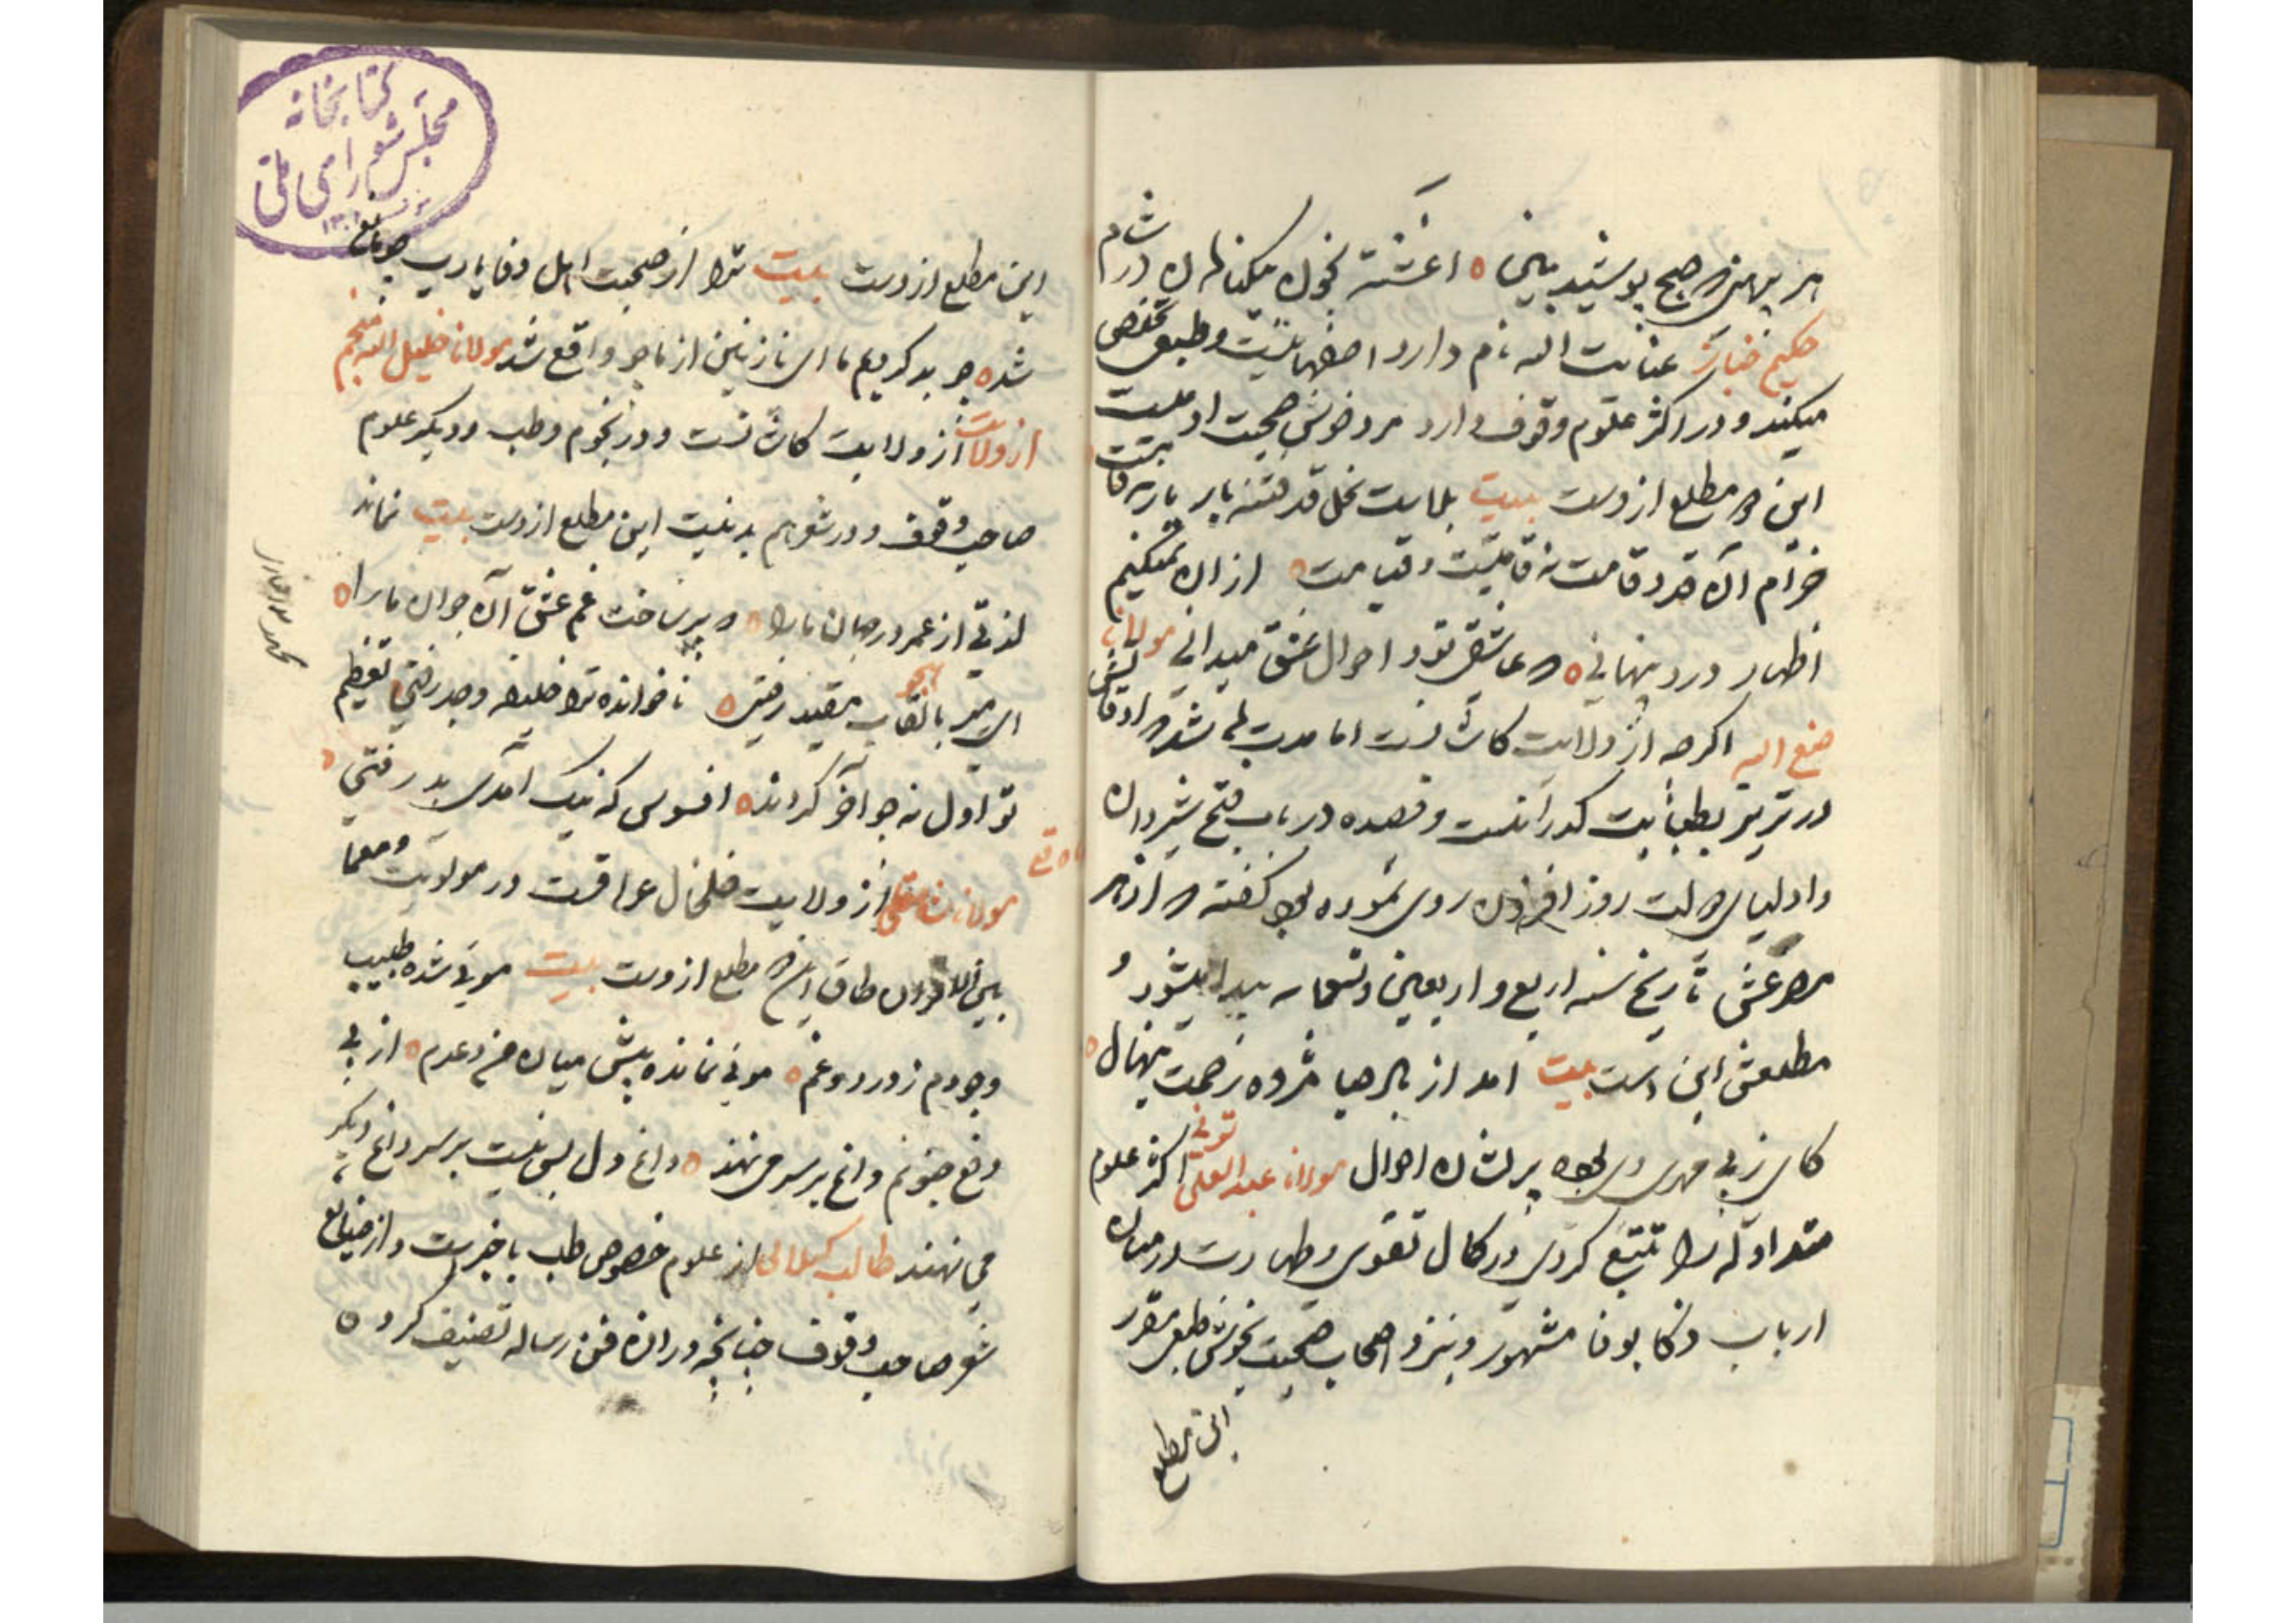 هر پیرهنی که صبح پوشید بینی ه اغشته بخون بیکناهان در شام
حکیم خباز عنایت الله نام دارد اصفهانیست و طبیعی تخلص
میکند و در اکثر علوم وقوف دارد مرد خوش صحبت اوست
این دو مطلع از وست بیت بلایست نخل قد فتنه بار
خرام آن قد و قامت نه قامتست و قیامت ه از ان نمیکنم
اظهار درد پنهانی ه که عاشق تو و احوال عشق میدانی مولانا
صنع الله اکرچه از ولایت کاشانست اما مدت شد که اوقاتش
در تبریز بطبابت کذرانست و قصیده در باب فتح شیروان
و اولیای دولت روز افزون روی نموده بود کفته که از هر
مصرعش تاریخ سنه اربع و اربعین و تسعمایه پیدا میشود و
مطلعش این است بیت امد از بهر حیا مژده رحمت نهال ه
کای ز بی مهری وی بوده پریشان احوال مولانا عبد العلی تونی اکثر علوم
متداوله را تتبع کردی در کمال تقوی و طهارت در میان
ارباب ذکا بوفا مشهور و نیز و اصحاب صحبت بخوش طبعی مقرر
این مطلع
کتابخانه
مجلس شورای ملی
این مطلع از وست بیت ترا از صحبت اهل وفا یا رب چه مانع
شد ه چه بد کردیم ما ای نازنین از ما چه واقع شد مولانا خلیل الله منجم
از ولایت از ولایت کاشانست و در نجوم و طب و دیکر علوم
صاحب وقوف و در شعر هم بد نیست این مطلع از وست بیت نماند
لذتی از عمر در جهان ما را ه که پیر ساخت غم عشق آن جوان ما را ه
ای میر بالقاب مقید رفتی ه ناخوانده ترا خلیفه و جد رفتی ه تعظیم
تو اول نه چو آخر کردند ه افسوس که نیک آمدی بد رفتی ه
مولانا از ولایت خلخال عراقست در مولویت و معما
بین الاقران طاق این دو مطلع از وست بیت مویی شده طبیب
وجودم ز درد و غم ه مویی نمانده بیش میان من و عدم ه از پی
دفع جنونم داغ بر سر می نهند ه داغ دل بس نیست بر سر داغ دیکر
می نهند طالب کیلانی از علوم خصوص طب باخبرست و از صنایع
شعر صاحب وقوف چنانچه در ان فن رساله تصنیف کرد ه